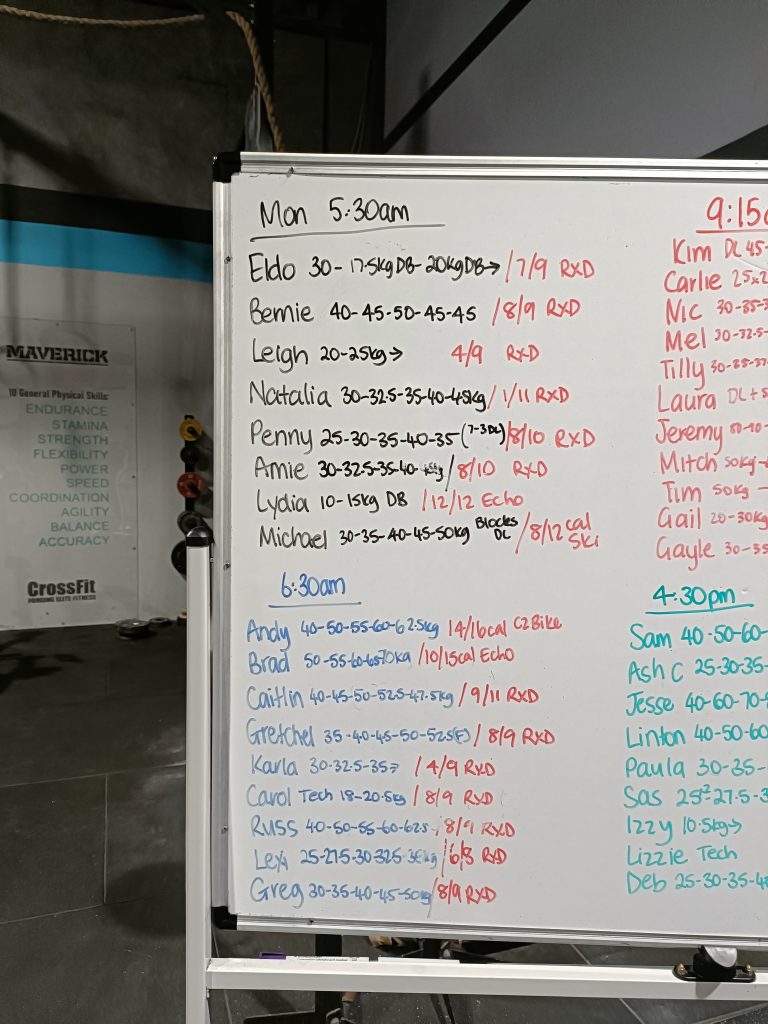 MAVERICK
10 General Physical Skills:
ENDURANCE
STAMINA
STRENGTH
FLEXIBILITY
POWER
SPEED
COORDINATION
AGILITY
BALANCE
ACCURACY
CrossFit
FORGING ELITE FITNESS
Mon 5:30am
Eldo 30-17.5kgDB-20kgDB→/7/9 RXD
Bernie 40-45-50-45-45 /8/9 RXD
Leigh 20-25kg→ 4/9 RXD
Natalia 30-32.5-35-40-45kg/1/11 RXD
Penny 25-30-35-40-35(7-3DL)/8/10 RXD
Amie 30-32.5-35-40- /8/10 RXD
Lydia 10-15kg DB /12/12 Echo
Michael 30-35-40-45-50kg Blocks DL /8/12 cal Ski
6:30am
Andy 40-50-55-60-62.5kg 14/16cal C2Bike
Brad 50-55-60-65-70kg /10/15cal Echo
Caitlin 40-45-50-52.5-47.5kg /9/11 RXD
Gretchel 35-40-45-50-52.5(F) /8/9 RXD
Karla 30-32.5-35→ /4/9 RXD
Carol Tech 18-20.5kg /8/9 RXD
Russ 40-50-55-60-62.5 /8/9 RXD
Lexi 25-27.5-30-32.5- kg /6/8 RXD
Greg 30-35-40-45-50kg /8/9 RXD
9:15
Kim DL 45-
Carlie 25
Nic 30-35-3
Mel 30-32.5-
Tilly 30-35-37
Laura DL+
Jeremy
Mitch 50kg-
Tim 50kg -
Gail 20-30kg
Gayle 30-35
4:30pm
Sam 40-50-60-
Ash C 25-30-35-
Jesse 40-60-70-
Linton 40-50-60
Paula 30-35-
Sas 25-27.5-3
Izzy 10.5kg→
Lizzie Tech
Deb 25-30-35-4